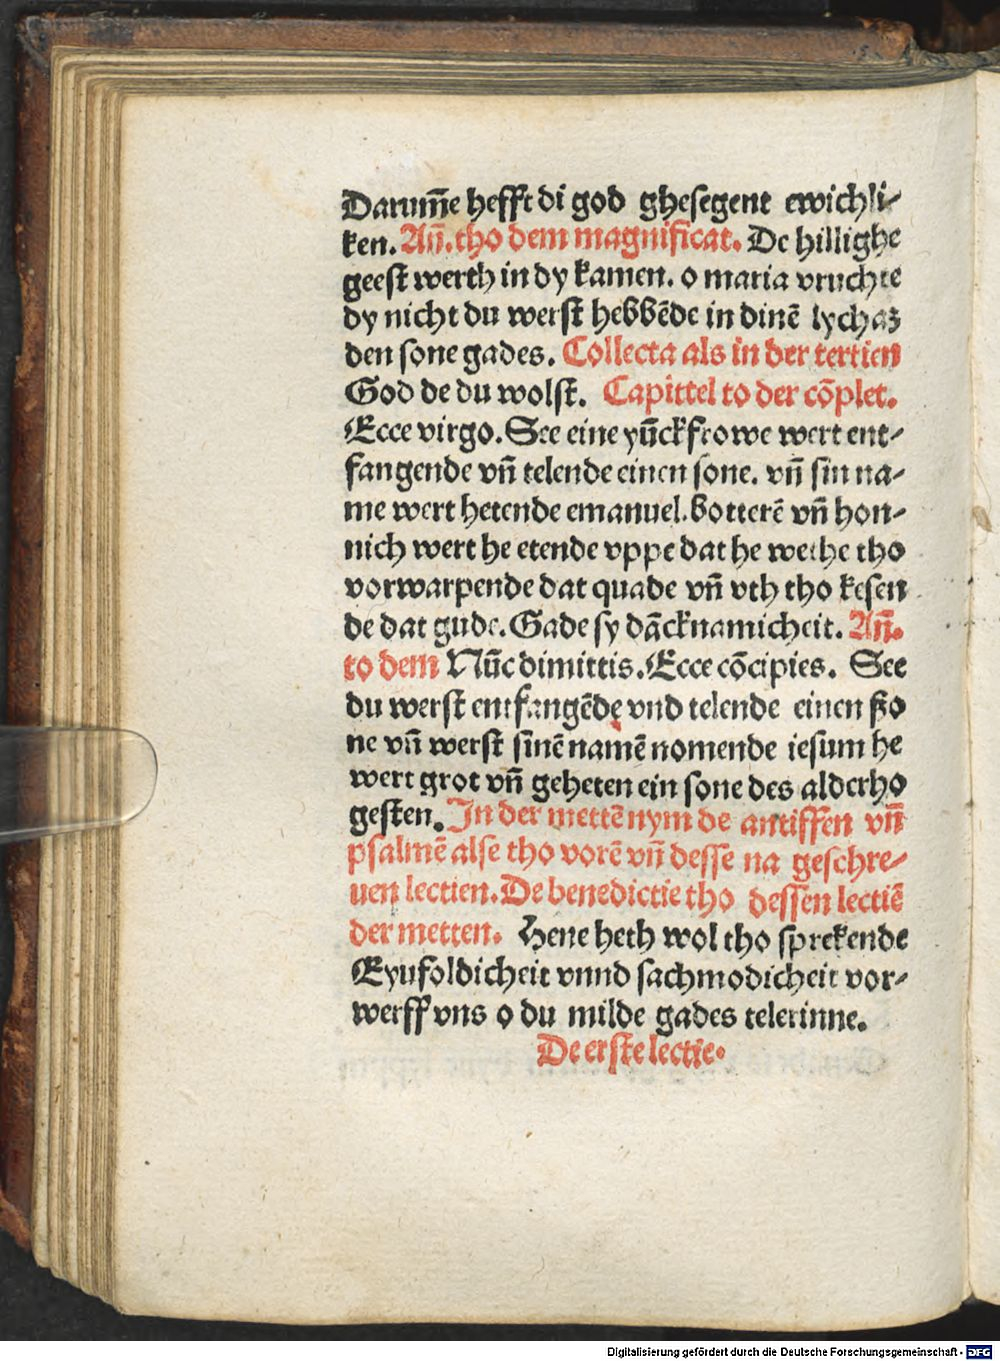 Darum̄e hefft di god ghesegent ewichli-
ken. An̄. tho dem magnificat. De hillighe
geest werth in dy kamen. o maria vruchte
dy nicht du werst hebbēde in dinē lychaꝫ
den sone gades. Collecta als in der tertien
God de du wolst. Capittel to der cōplet.
Ecce virgo. See eine yūckfrowe wert ent-
fangende vn̄ telende einen sone. vn̄ sin na-
me wert hetende emanuel. botterē vn̄ hon-
nich wert he etende vppe dat he wethe tho
vorwarpende dat quade vn̄ vth tho kesen
de dat gude. Gade sy dācknamicheit. An̄.
to dem Nūc dimittis. Ecce cōcipies. See
du werst entfangēde vnd telende einen ßo
ne vn̄ werst sinē namē nomende iesum he
wert grot vn̄ geheten ein sone des alderho
gesten. In der mettē nym de antiffen vn̄
psalmē alse tho vorē vn̄ desse na geschre-
uen lectien. De benedictie tho dessen lectiē
der metten. Hene heth wol tho sprekende
Eynfoldicheit vnnd sachmodicheit vor-
werff vns o du milde gades telerinne.
De erste lectie.
Digitalisierung gefördert durch die Deutsche Forschungsgemeinschaft - DFG